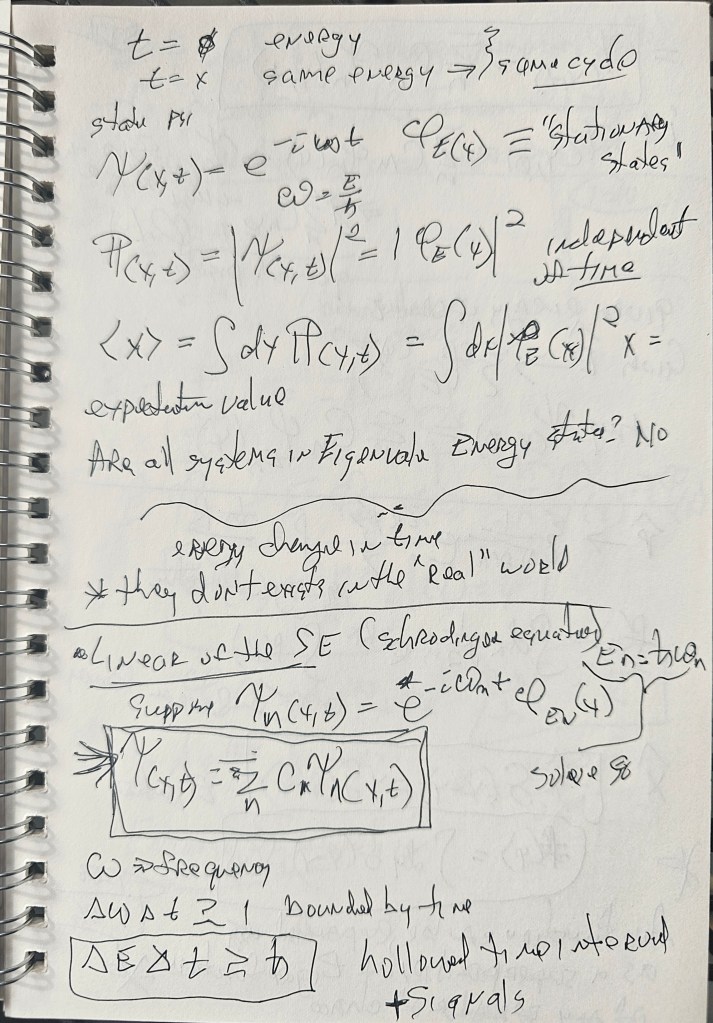 t = 0 energy
t = x same energy ⇒ } same cycle
state psi
Ψ(x,t) = e^{-iωt} φ_E(x) ≡ "stationary states"
ω = E/ħ
ℙ(x,t) = |Ψ(x,t)|² = |φ_E(x)|² independent of time
⟨x⟩ = ∫dx ℙ(x,t) = ∫dx|φ_E(x)|² x =
expectation value
Are all systems in Eigenvalue Energy states? NO
energy change in time
* they dont exists in the "Real" world
Linear of the SE (schrodinger equation)
E_n = ħω_n
Suppose Ψ_n(x,t) = e^{-iω_n t} φ_{En}(x)
solve SE
Ψ(x,t) = Σ_n C_n Ψ_n(x,t)
ω ⇒ frequency
Δω Δt ≥ 1 bounded by time
ΔE Δt ≥ ħ hollowed time interval
+ Signals